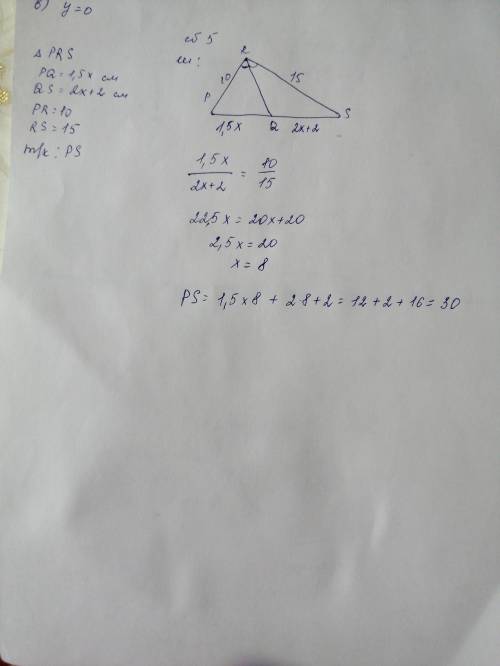 в) y=0
△ PRS
PQ=1,5x см
QS=2x+2 см
PR=10
RS=15
т/к: PS
сб 5
ш:
R
10
15
P
S
1,5x
Q
2x+2
1,5x / 2x+2 = 10 / 15
22,5x = 20x+20
2,5x = 20
x = 8
PS= 1,5×8 + 2·8+2 = 12+2+16=30